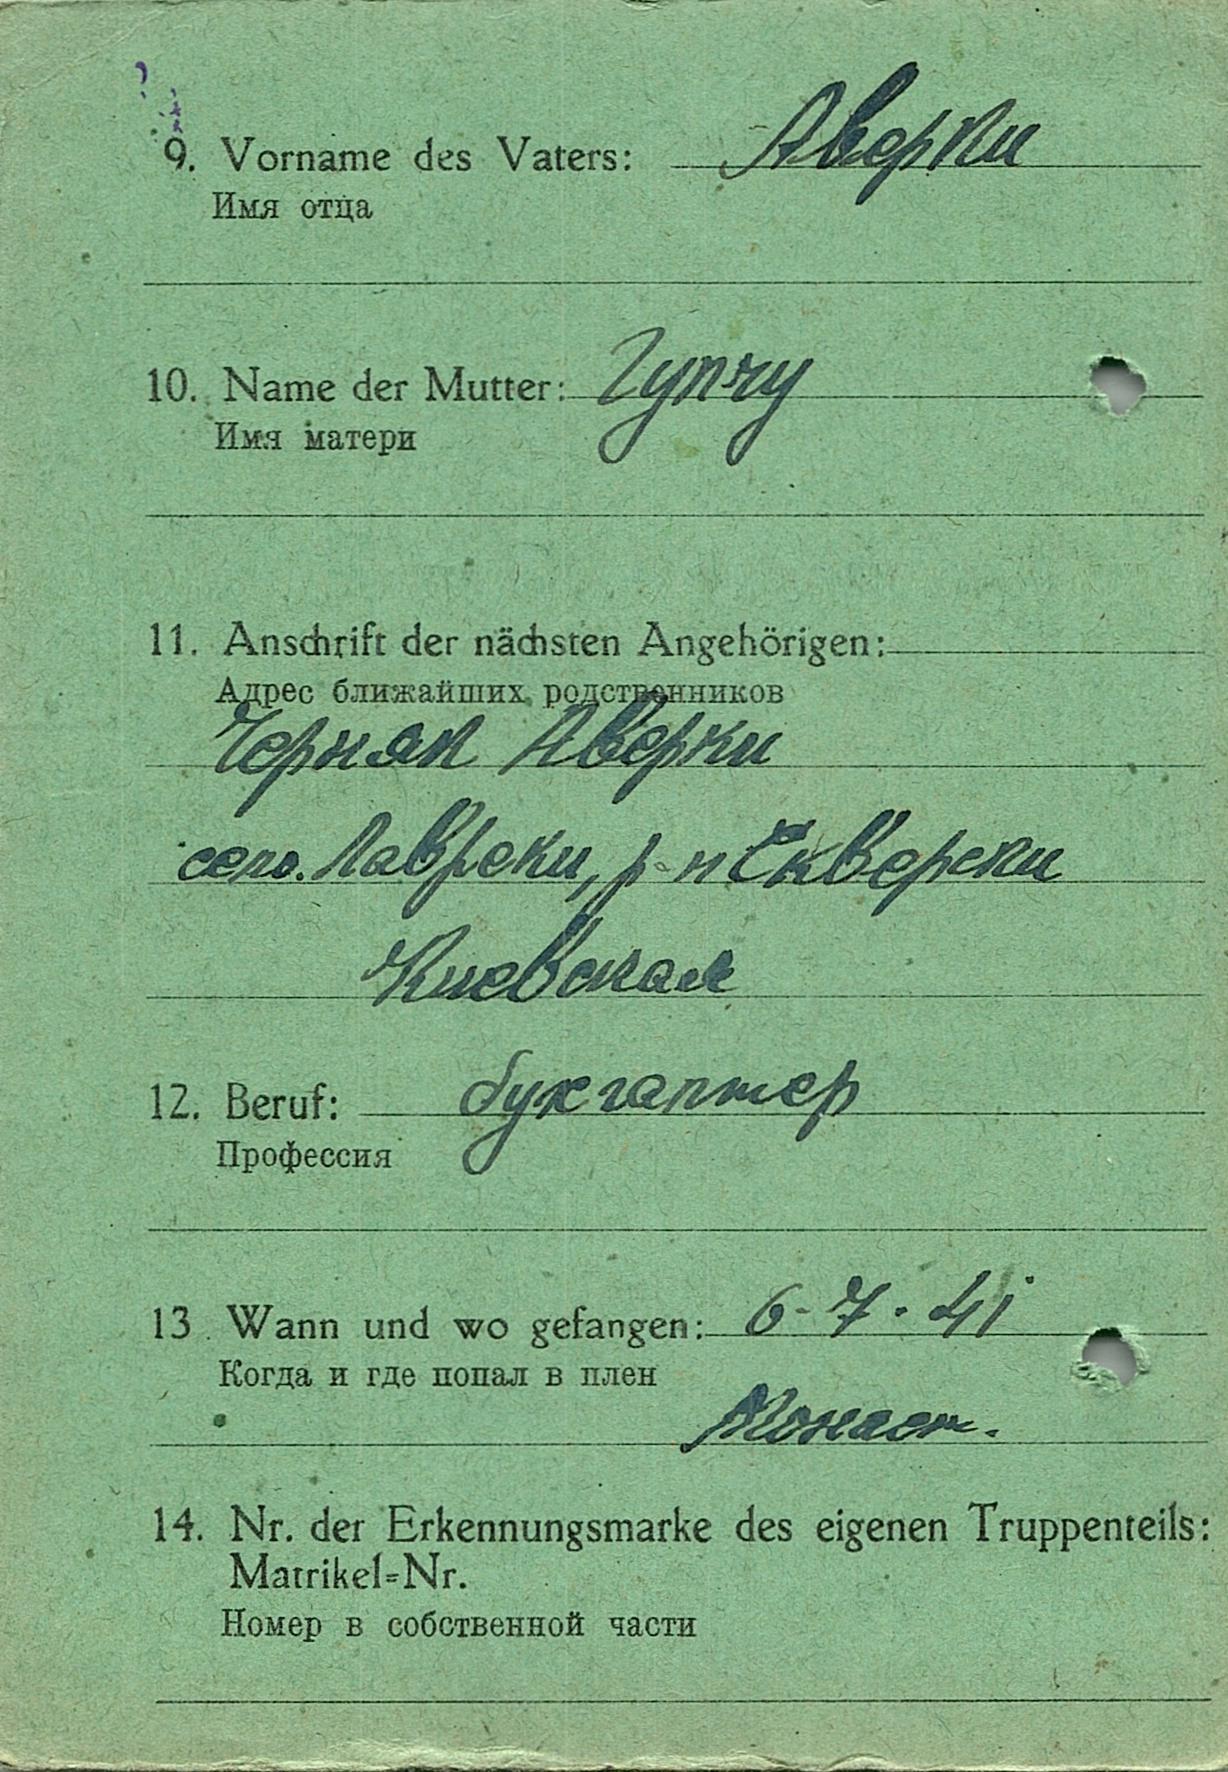 9. Vorname des Vaters: Аверки
Имя отца
10. Name der Mutter: Гупчу
Имя матери
11. Anschrift der nächsten Angehörigen:
Адрес ближайших родственников
Черняк Аверки
село. Лавреки, р-н Скверски
Киевская
12. Beruf: бухгалтер
Профессия
13. Wann und wo gefangen: 6-7.41
Когда и где попал в плен
Монаст.
14. Nr. der Erkennungsmarke des eigenen Truppenteils:
Matrikel=Nr.
Номер в собственной части